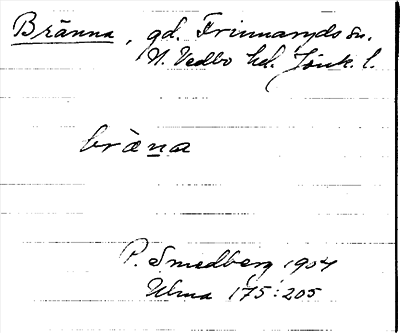 Bränna, gd. Frinnaryds sn.
N. Vedbo hd. Jönk. l.
bràṉa
P. Smedberg 1904
Ulma 175:205